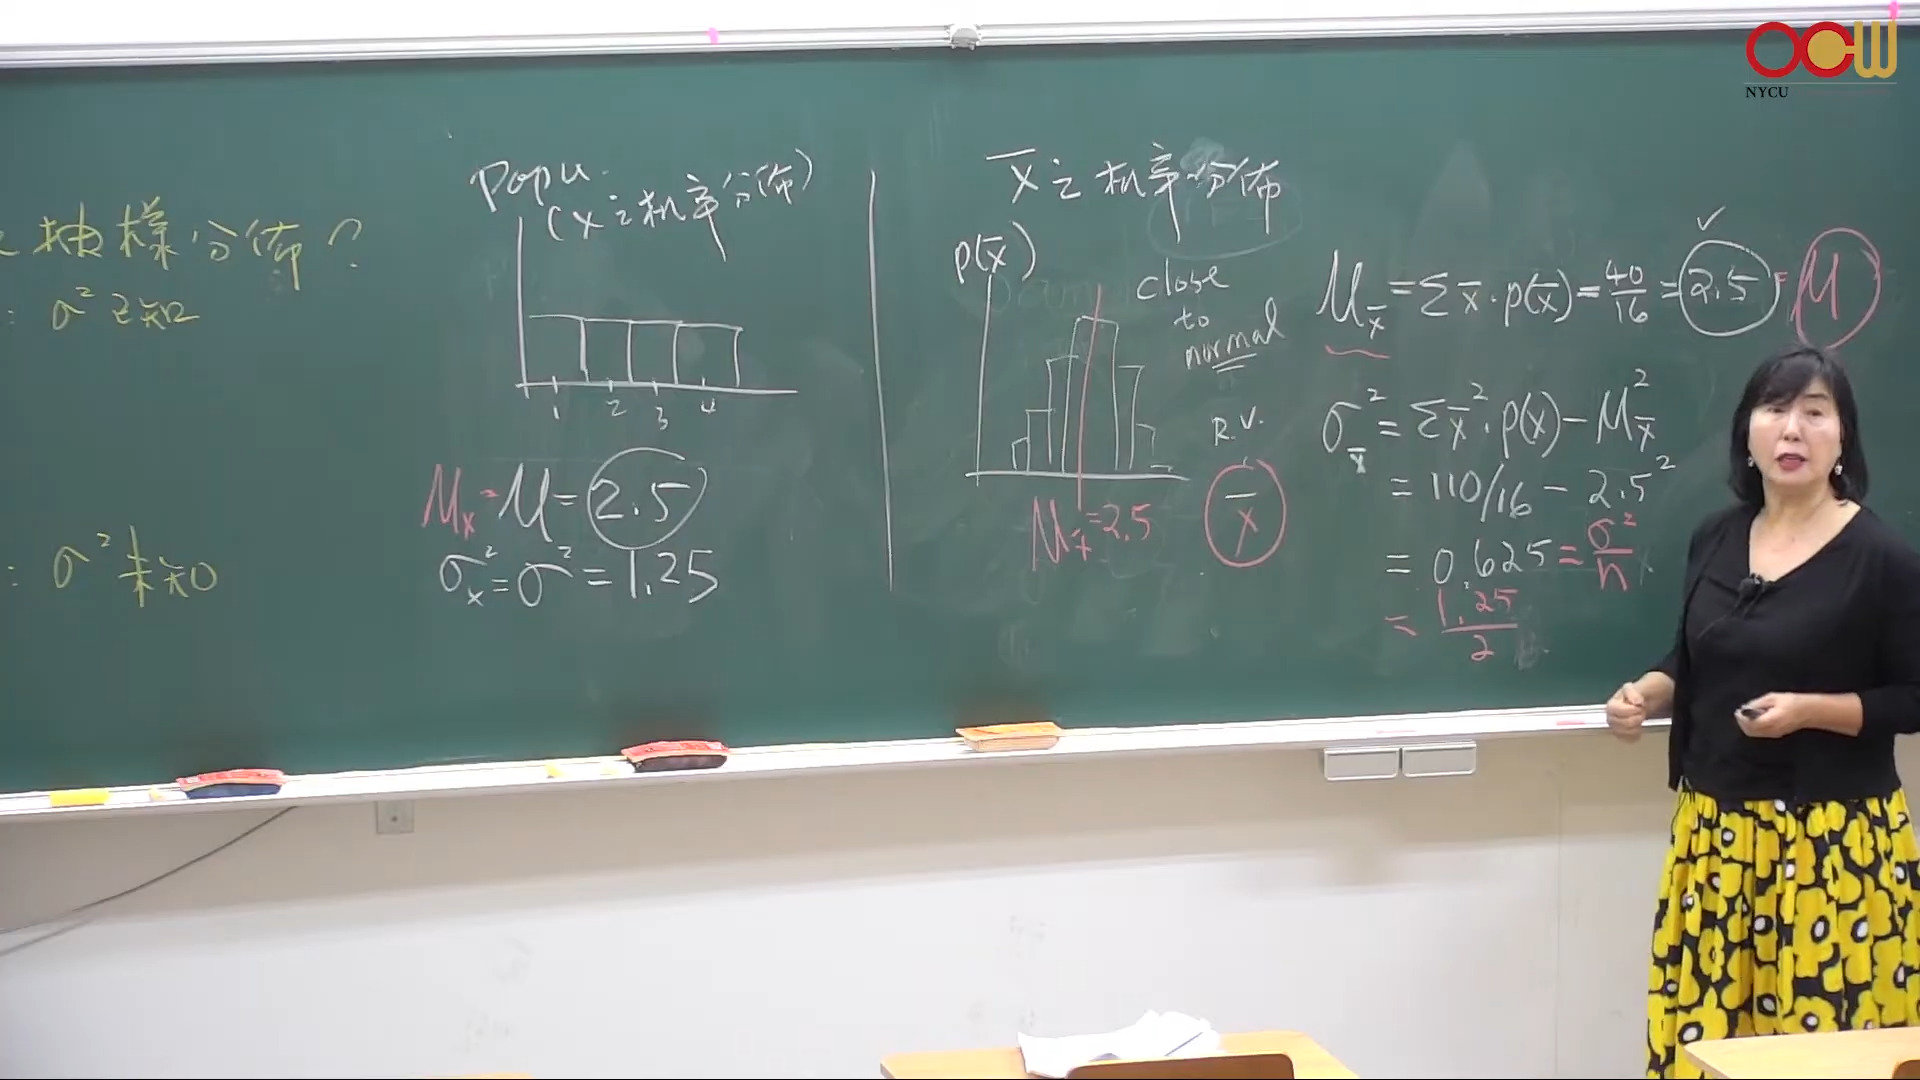 抽樣分佈?
: σ² 已知
: σ² 未知
Popu.
(X 之机率分佈)
1 2 3 4
μₓ = μ = 2.5
σₓ² = σ² = 1.25
X̄ 之机率分佈
P(X̄)
close
to
normal
R.V.
X̄
μ_x̄ = 2.5
✓
μ_x̄ = Σ x̄ · p(x̄) = 40/16 = 2.5 = μ
σ_x̄² = Σ x̄² · p(x) − μ_x̄²
= 110/16 − 2.5²
= 0.625 = σ²/n
= 1.25/2
OCW
NYCU